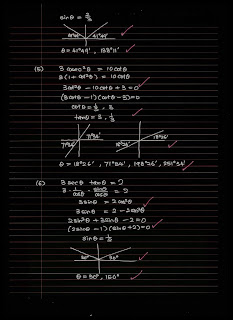 sinθ = 2/3
41°49' 41°49'
θ = 41°49', 138°11'
(5) 3 cosec²θ = 10cotθ
3(1 + cot²θ) = 10cotθ
3cot²θ - 10cotθ + 3 = 0
(3cotθ - 1)(cotθ - 3) = 0
cotθ = 1/3, 3
tanθ = 3, 1/3
71°34' 71°34' 18°26' 18°26'
θ = 18°26', 71°34', 198°26', 251°34'
(6) 3 secθ tanθ = 2
3 · 1/cosθ · sinθ/cosθ = 2
3sinθ = 2cos²θ
3sinθ = 2 - 2sin²θ
2sin²θ + 3sinθ - 2 = 0
(2sinθ - 1)(sinθ + 2) = 0
sinθ = 1/2
30° 30°
θ = 30°, 150°